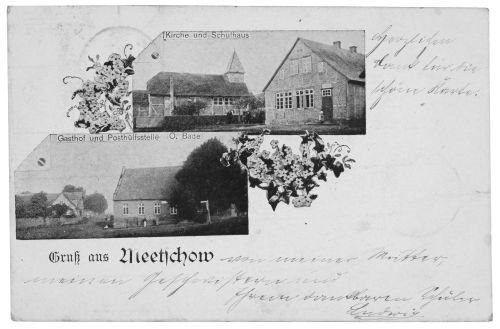 Kirche und Schulhaus
Herzlichen
Dank für die
schöne Karte.
Gasthof und Posthülfsstelle O. Bade
Gruß aus Meetschow von meiner Mutter,
meinen Geschwistern und
Ihrem dankbaren Schüler
Ludwig